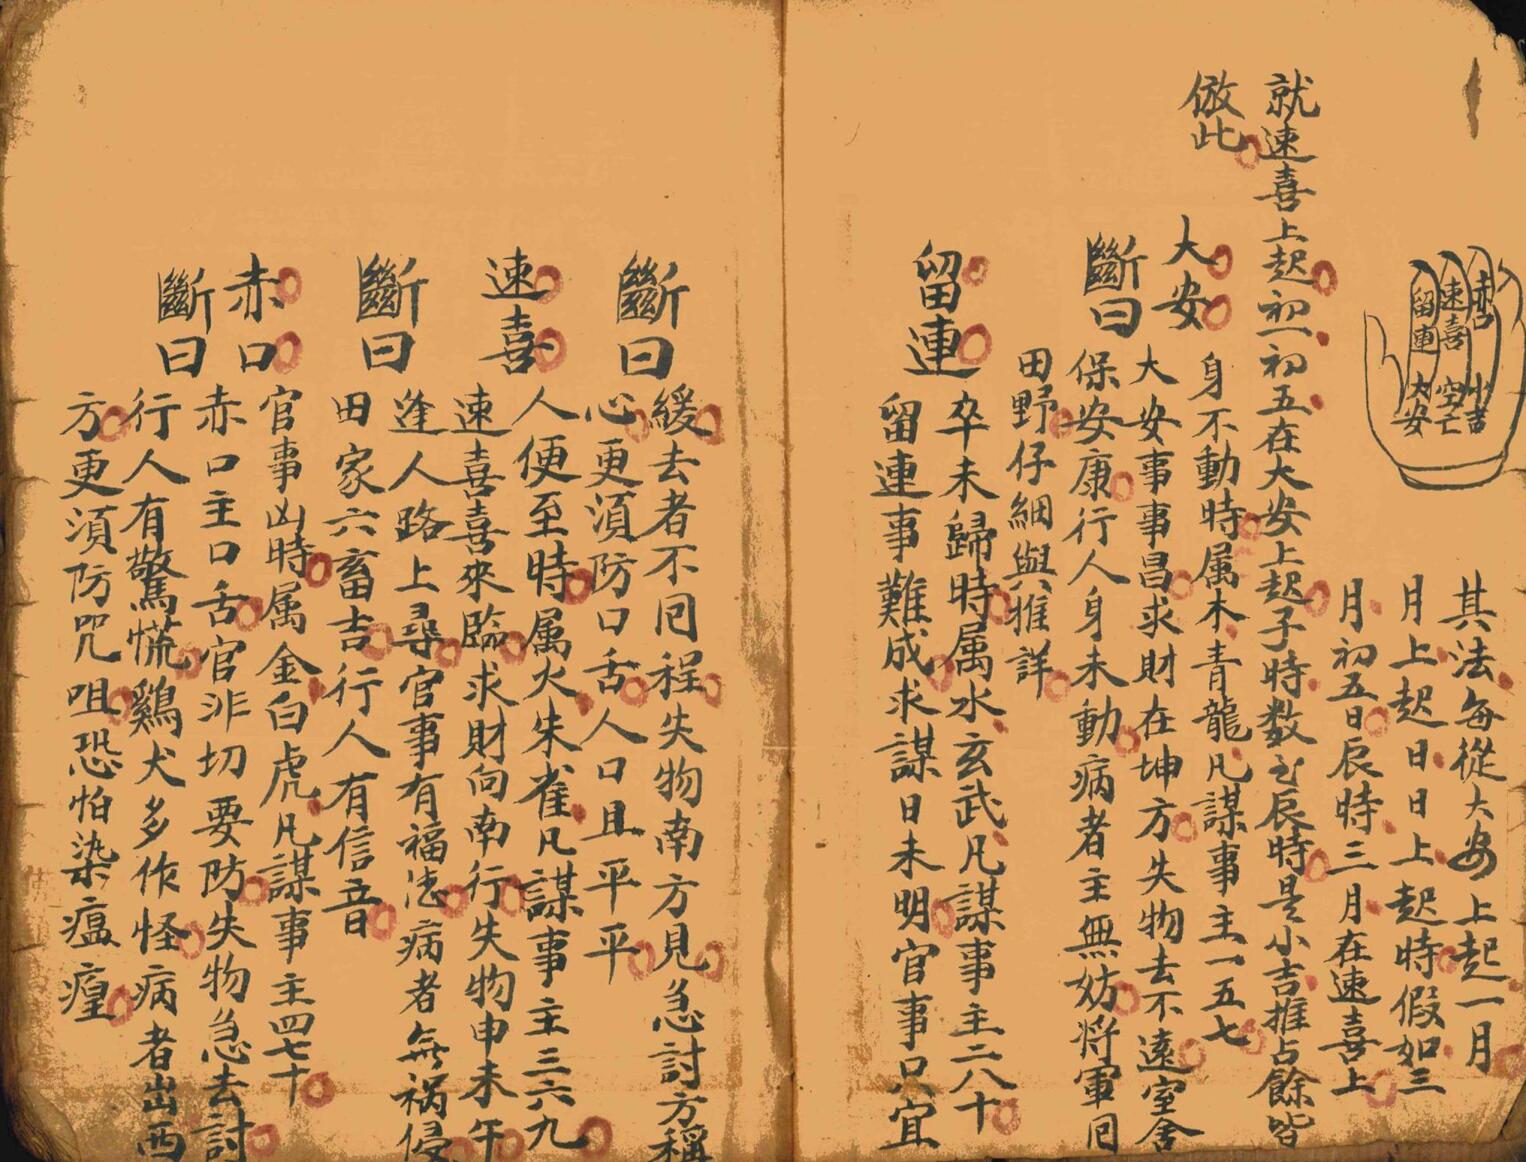 赤口
速喜
留連
小吉
空亡
大安
其法每從大安上起一月
月上起日日上起時假如三
月初五日辰時三月在速喜上
就速喜上起初一初五在大安上起子時数至辰時是小吉推占餘皆
倣此
大安
身不動時属木青龍凡謀事主一五七
斷曰
大安事事昌求財在坤方失物去不遠室舍
保安康行人身未動病者主無妨将軍囘
田野仔細與推詳
留連
卒未歸時属水玄武凡謀事主二八十
留連事難成求謀日未明官事只宜
斷曰
緩去者不囘程失物南方見急討方稱
心更須防口舌人口且平平
速喜
人便至時属火朱雀凡謀事主三六九
速喜喜來臨求財向南行失物申未午
斷曰
逢人路上尋官事有福德病者無祸侵
田家六畜吉行人有信音
赤口
官事凶時属金白虎凡謀事主四七十
斷曰
赤口主口舌官非切要防失物急去討
行人有驚慌鷄犬多作怪病者出西
方更須防咒咀恐怕染瘟瘟